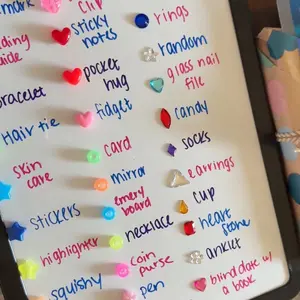 mark
clip
rings
sticky
notes
random
pocket
hug
glass nail
file
bracelet
fidget
candy
Hair tie
card
socks
skin
care
mirror
earrings
emery
board
cup
stickers
necklace
heart
stone
highlighter
coin
purse
anklet
squishy
pen
blind date w/
a book